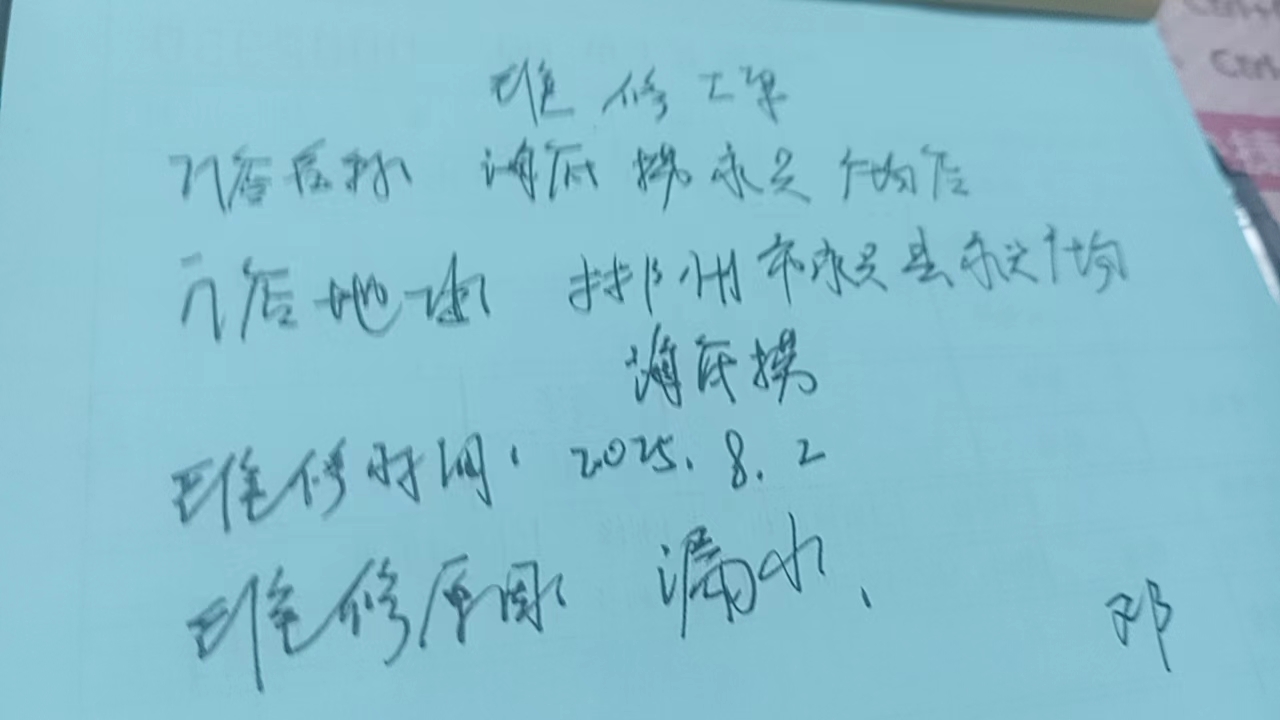 维修工单
门店名称 海底捞永兴广场店
门店地址 郴州市永兴县永兴广场
海底捞
维修时间: 2025.8.2
维修原因: 漏水、
邓